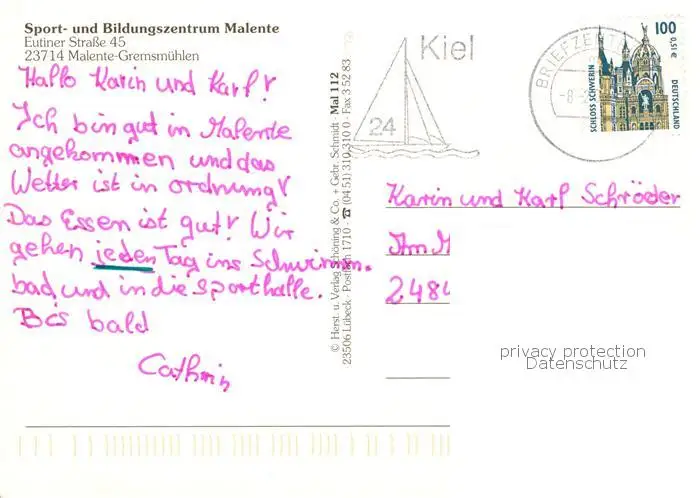 Sport- und Bildungszentrum Malente
Eutiner Straße 45
23714 Malente-Gremsmühlen
Hallo Karin und Karl!
Ich bin gut in Malente
angekommen und das
Wetter ist in ordnung!
Das Essen ist gut! Wir
gehen jeden Tag ins Schwimm.
bad, und in die Sporthalle.
Bis bald
Cathrin
© Herst. u. Verlag Schöning & Co. + Gebr. Schmidt · Mal 112
23506 Lübeck · Postfach 1710 · ☎ (04 51) 310 310 0 · Fax 3 52 83
Kiel
24
BRIEFZENT
-8.
100
0,51 €
SCHLOSS SCHWERIN
DEUTSCHLAND
Karin und Karl Schröder
Am M
2484
privacy protection
Datenschutz